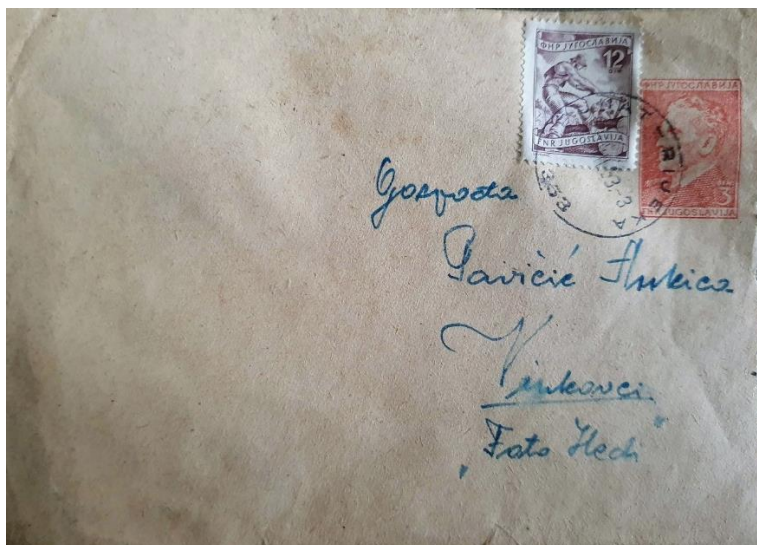 ФНР ЈУГОСЛАВИЈА
12
FNR JUGOSLAVIJA
ФНР ЈУГОСЛАВИЈА
3
FNR JUGOSLAVIJA
RIJEKA
Gospođa
Pavičić
Vinkovci
"Foto Hedi"